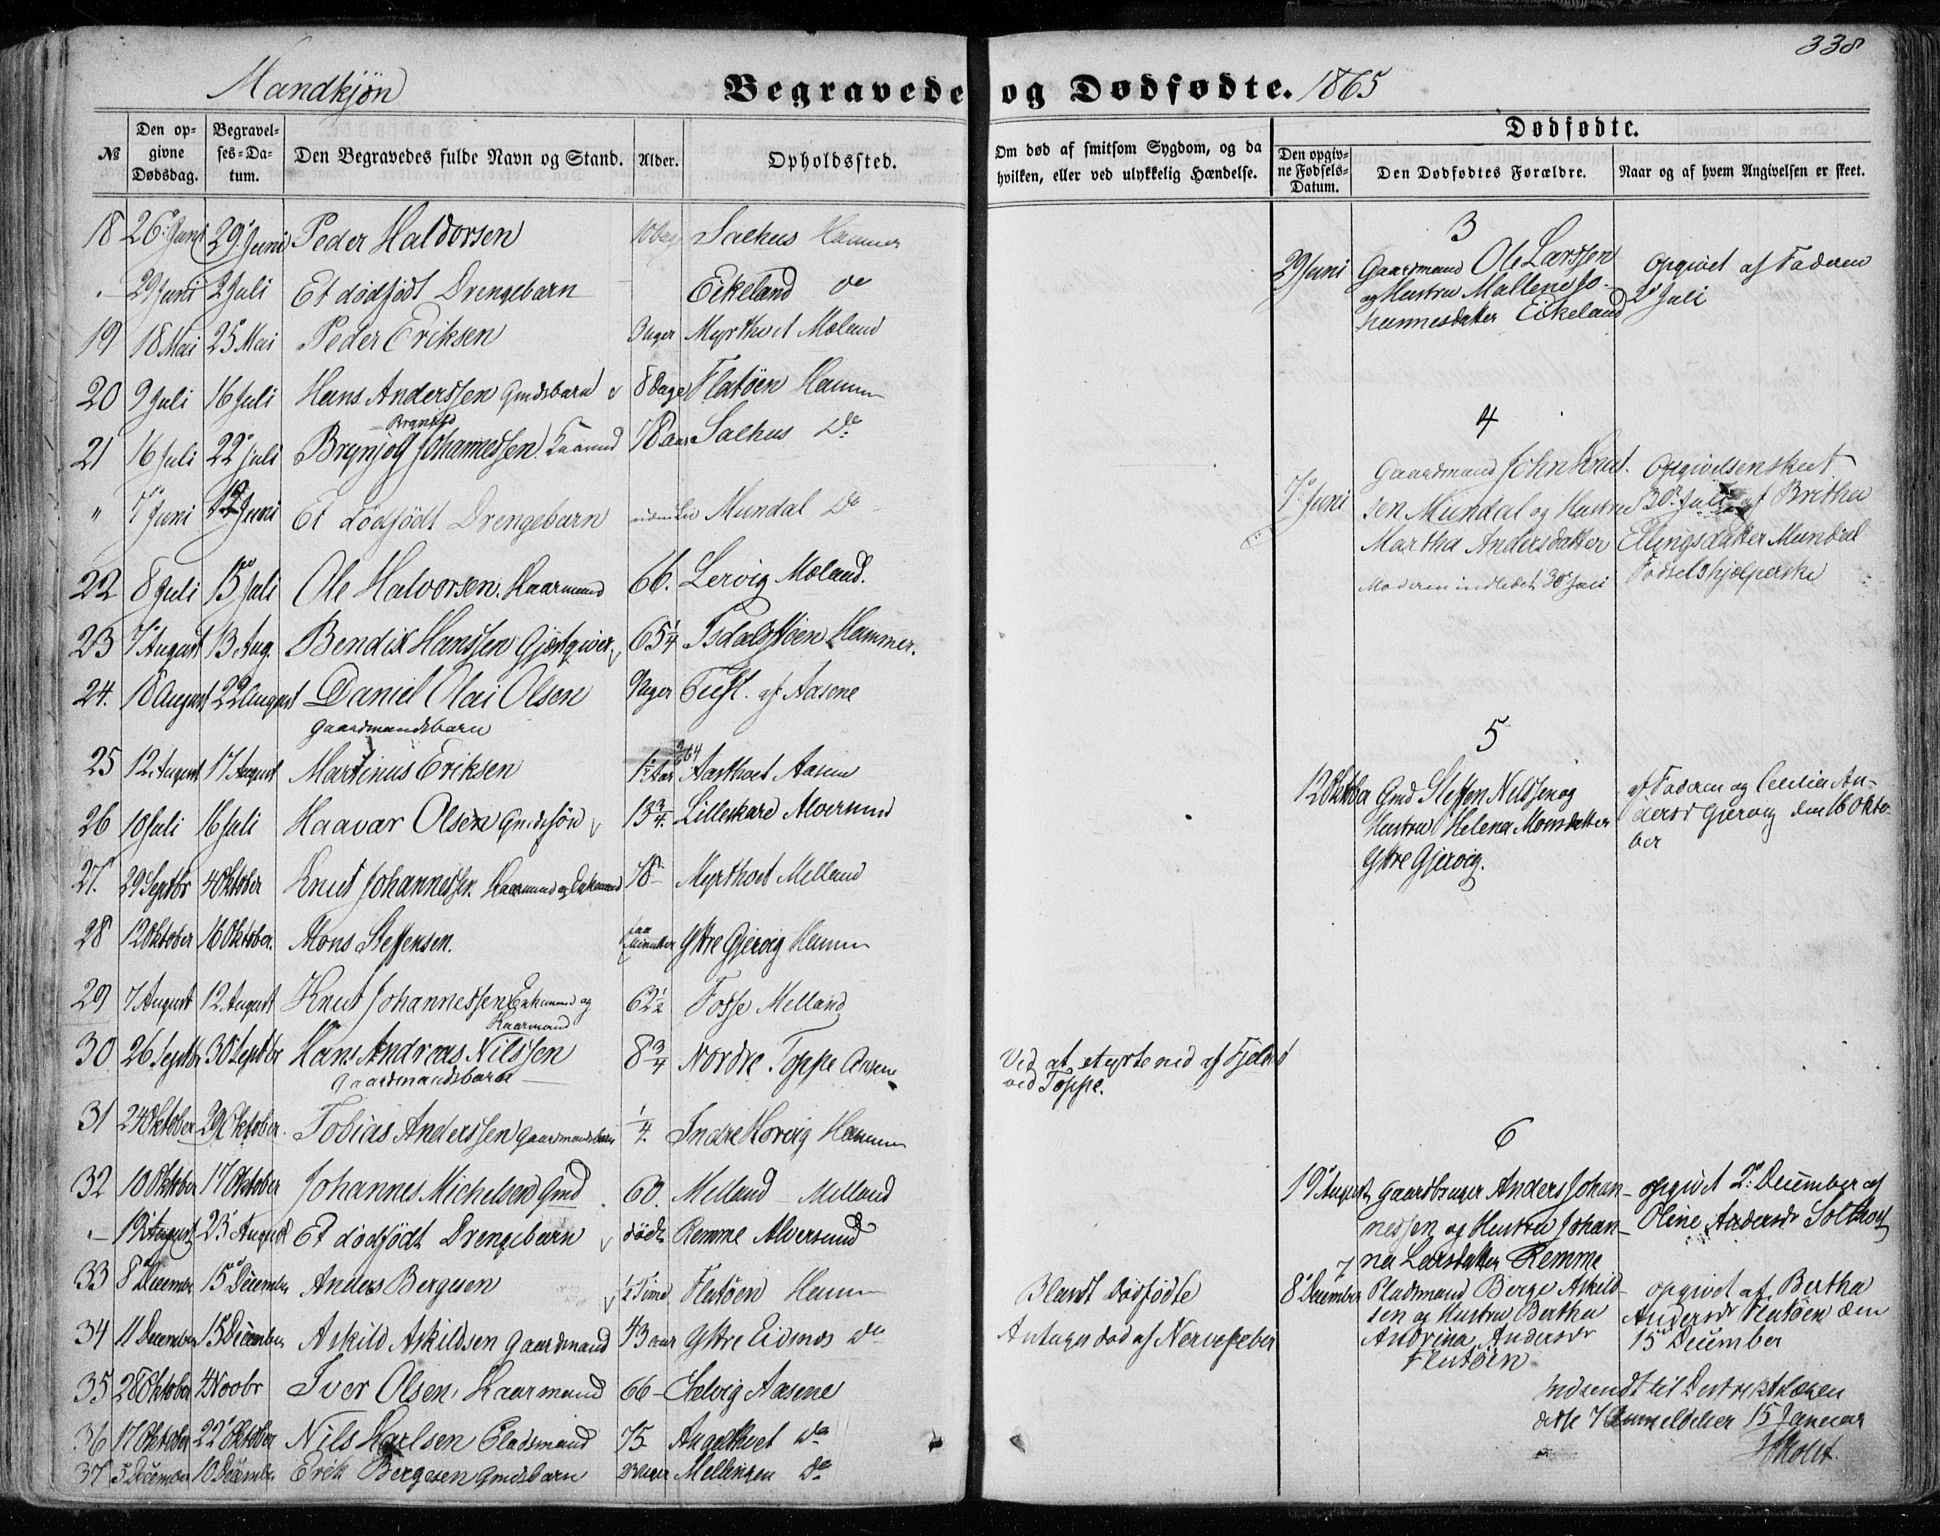 338
Mandkjøn
Begravede og Dødfødte. 1865
№
Den opgivne Dødsdag.
Begravelses-Datum.
Den Begravedes fulde Navn og Stand.
Alder.
Opholdssted.
Om død af smitsom Sygdom, og da hvilken, eller ved ulykkelig Hændelse.
Dødfødte.
Den opgivne Fødsels-Datum.
Den Dødfødtes Forældre.
Naar og af hvem Angivelsen er skeet.
18 26 Juni 29 Juni Peder Haldorsen Salhus Hammer
29 Juni 2 Juli Et dødfødt Drengebarn Eikeland do
19 18 Mai 25 Mai Peder Eriksen 3 Uger Myrthvet Mæland
20 9 Juli 16 Juli Hans Anderssen Gmdsbarn 8 Dage Flatøen Hamm
21 16 Juli 22 Juli Brynjolf Johannessen Kaarmd 78 Aar Salhus Do
" 7 Juni 12 Juni Et dødfødt Drengebarn Mundal Do
22 8 Juli 15 Juli Ole Halvorsen. Kaarmand 66. Lervig Mæland.
23 7 August 13 Aug. Bendix Hanssen Gjæstgiver 65¼ Isdalstøen Hammer.
24. 18 August 22 August Daniel Olai Olsen 9 Uger Tuft. af Aasene
Gaardmandsbarn
25 12 August 17 August Martinus Eriksen 1½ Aar Aasthvet Aasene
26 10 Juli 16 Juli Haavar Olsen Gmdssøn 13¾. Lilleskare Alversund
27. 29 Septbr 4 Oktober Knut Johannessen. Kaarmand og Enkemand 78- Myrthvet Melland
28 12 Oktober 16 Oktober. Mons Steffensen. faa Minutter Ystre Gjervig Hamm
29 7 August 12 August Knut Johannessen Enkemand og 62½ Fosse Melland
Kaarmand
30 26 Septbr 30 Septbr Hans Andreas Nilssen 8¾ Nordre Toppe Aasene
Gaardmandsbarn
Ved at styrte ned af Fjeldet
ved Toppe.
31 24 Oktober 29 Oktober. Tobias Anderssen Gaardmandsbarn ¼ Indre Hovig Hamm
32 10 Oktober 17 Oktober Johannes Michelsen Gmd 60. Melland Melland
19 August 23 August Et dødfødt Drengebarn dødt Remme Alversund
33 8 December 15 December Anders Bergesen ½ Time Flatøen Hamm
Blandt Dødfødte
34 11 December 15 December Askild Askildsen Gaardmand 43 aar Ystre Eidsnes Do
Antages død af Nervefeber
35 28 Oktober 4 Novbr Iver Olsen, Kaarmand 66- Aasene
36 17 Oktober 22 Oktober Nils Karlsen Pladsmand 75 Do
37 5 December 10 December Erik Bergesen Gmdsbarn 3 Uger Mellingen Do
3
29 Juni Gaardmand Ole Larssen
og Hustru Mallene Jo-
hannesdatter Eikeland
Opgivet af Faderen
2 Juli
4
7 Juni Gaardmand John Knut-
sen Mundal og Hustru
Martha Andersdatter
Moderen indledet 30 Juli
Opgivelsen skeet
30 Juli af Britha
Ellingsdatter Mundal
Fødselshjælperske
5
12 Oktober Gmd Steffen Nilssen og
Hustru Helena Monsdatter
Ystre Gjervig.
af Faderen og Cecilia An-
dersdr Gjervig den 16 Okto-
ber
6
19 August Gaardbruger Anders Johan-
nessen og Hustru Johan-
na Larsdatter Remme
opgivet 2 December af
Oline Andersdr Solthvet
7
8 December Pladsmand Berge Askild-
sen og Hustru Bertha
Andrina Andersdr
Flatøen
opgivet af Bertha
Andersdr Flatøen den
15 December
Indsendt til Distriktslægen
dette 7 Anmeldelser 15 Januar